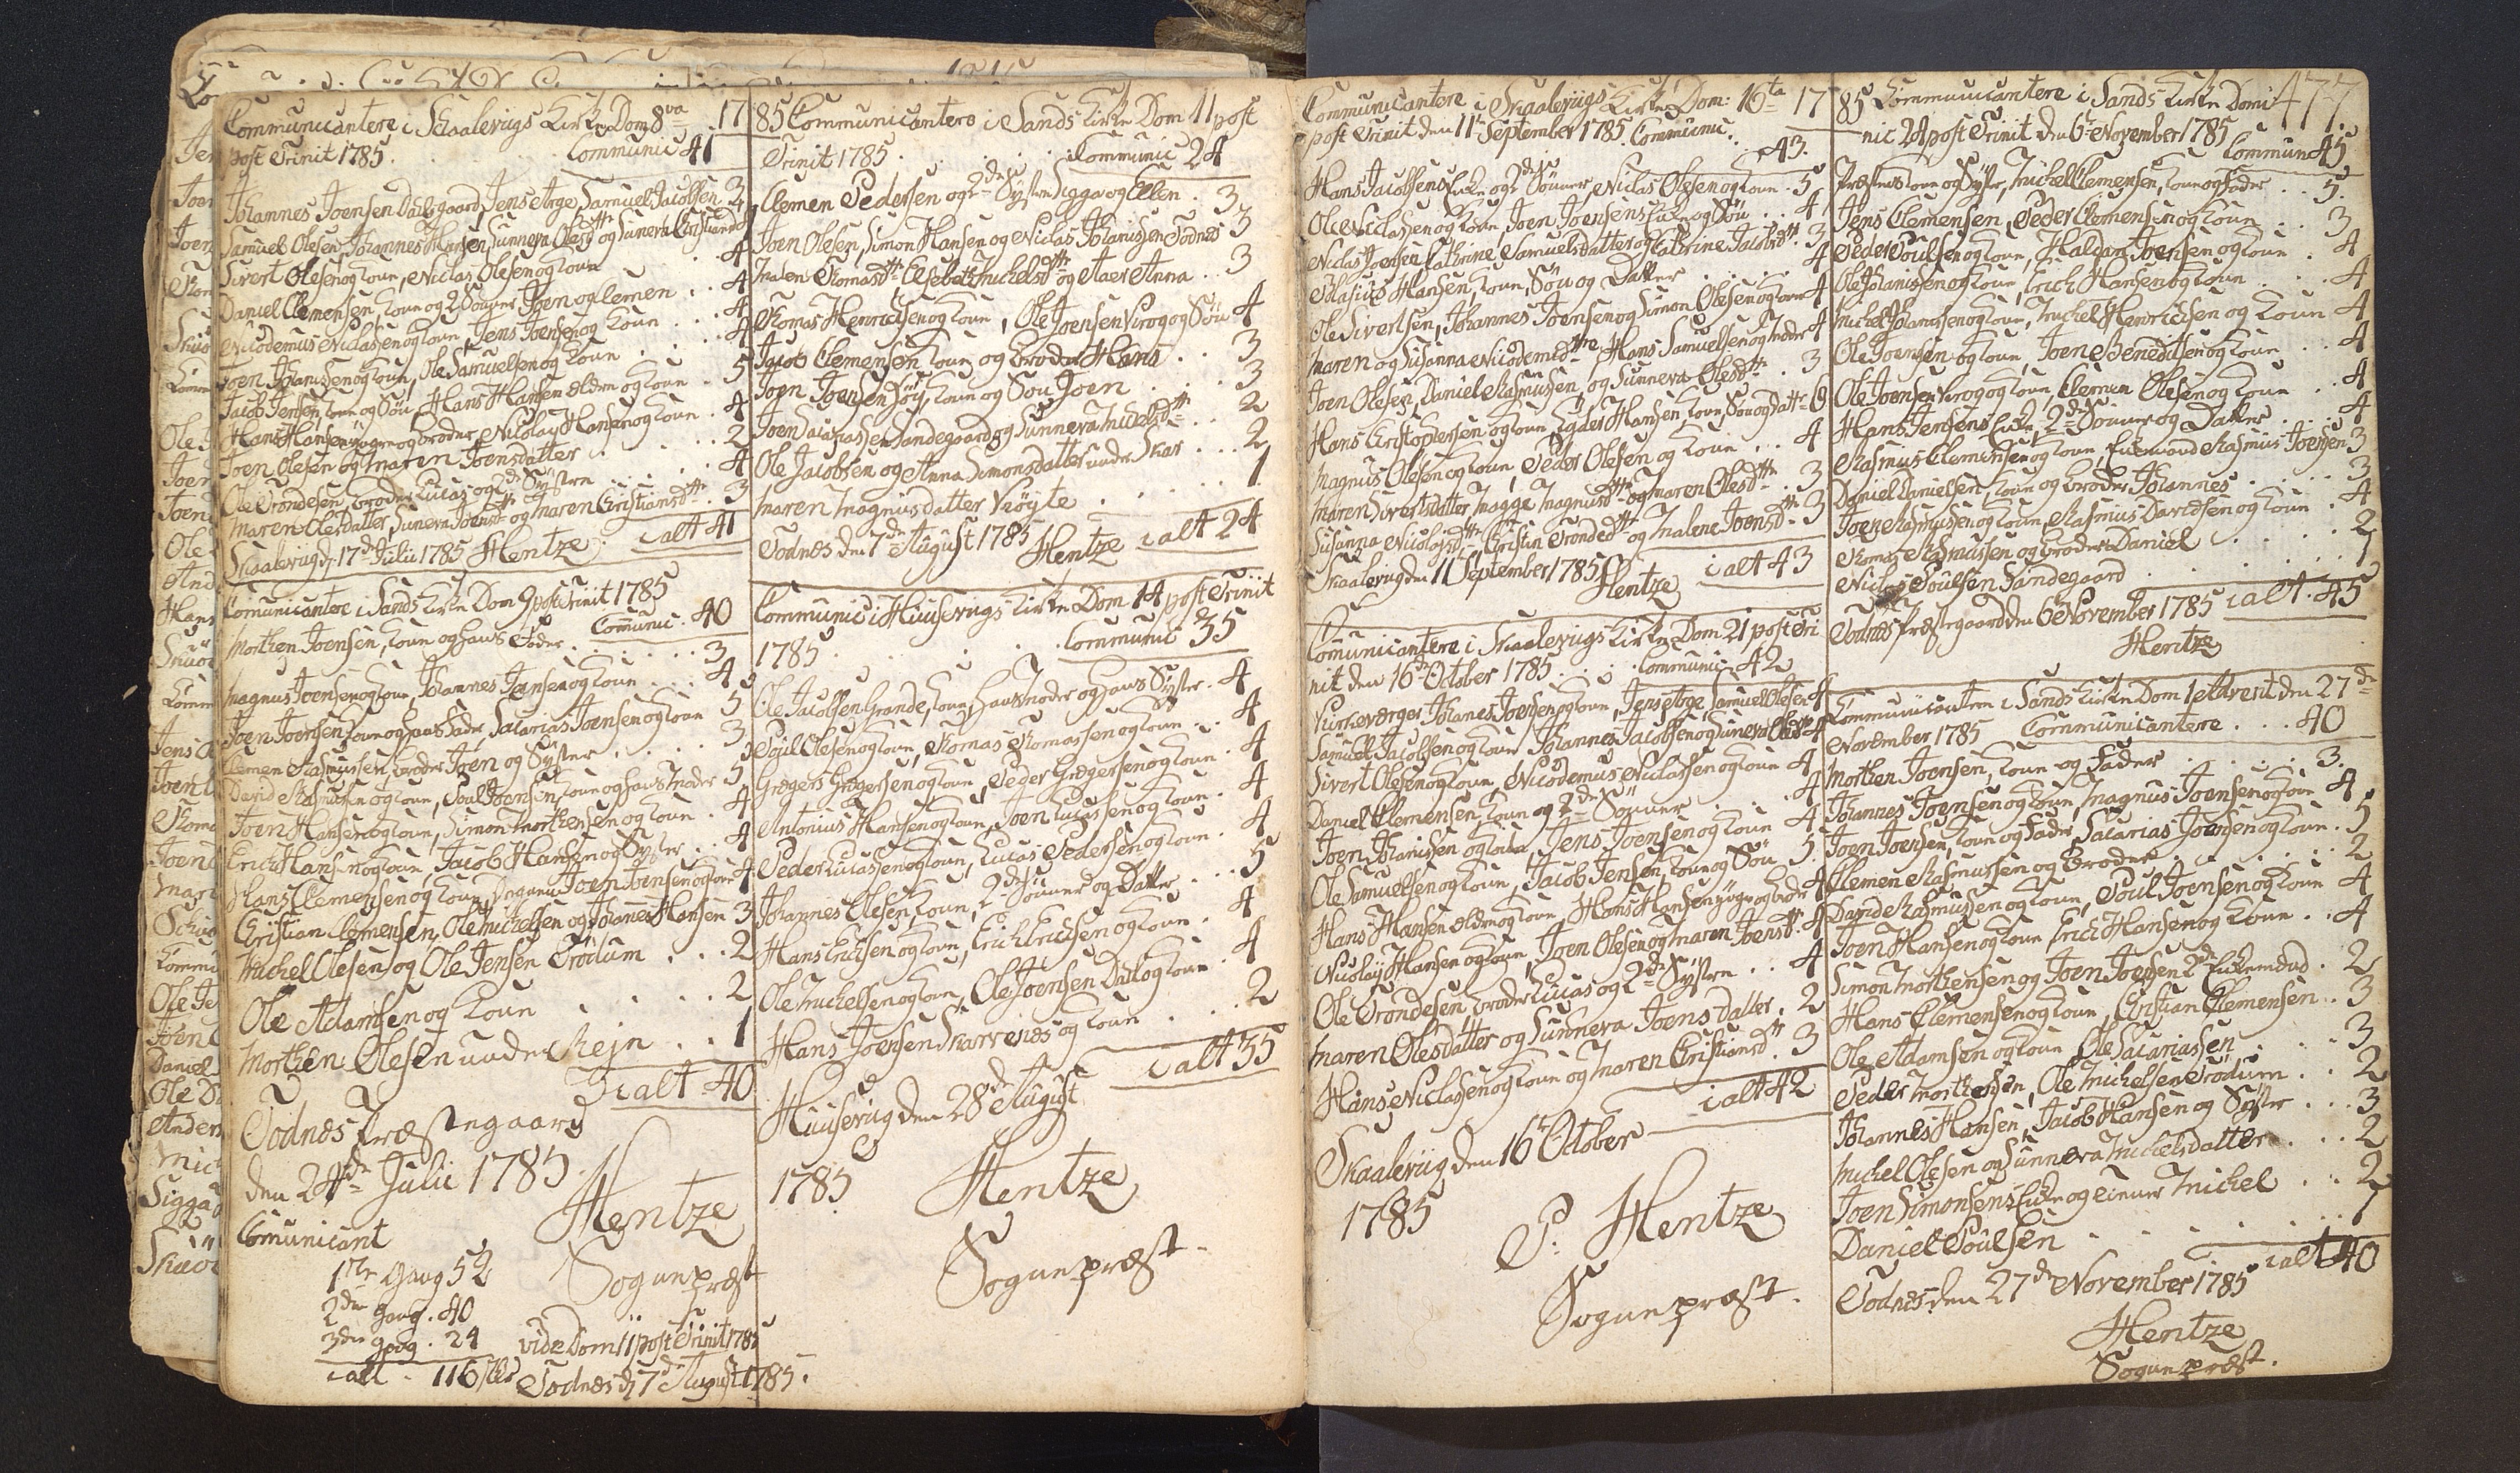 Communicantere i Skaalevigs Kirke Dom 8va 17
post Trinit 1785. Communic 41
Johannes Joensen Dalsgaard, Jens Arge, Samuel Jacobsen 3
Samuel Olesen, Johannes Hansen, Sunneva Olesdttr og Suneva Christiansd 4
Sivert Olesen og Kone, Niclas Olesen og Kone 4
Daniel Clemensen, Kone og 2 Sönner Joen og Clemen . . 4
Nicodemus Niclasen og Kone, Jens Joensen og Kone . . . 4
Joen Johannissen og Kone, Ole Samuelsen og Kone . . . 4
Jacob Jensen, Kone og Sön, Hans Hansen eldre og Kone . 5
Hans Hansen yngre og broder, Nicolay Hansen og Kone . 4
Joen Olesen og Maren Joensdatter . . . 2
Ole Trondesen, broder Lucas og 2de Systre . . . 4
Maren Olesdatter, Suneva Joensdttr og Maren Christiansdttr . 3
Skaalevig d. 17de Julii 1785 Hentze. ialt 41
Comunicantere i Sands Kirke Dom 9 post Trinit 1785
Communic. 40
Morthen Joensen, Kone og hans Fader . . . . . . 3
Magnus Joensen og Kone, Johannes Joensen og Kone . . . 4
Joen Joensen Kone og hans Fader, Sacarias Joensen og Kone 5
Clemen Rasmussen, broder Joen og Syster . . . . 3
David Rasmussen og Kone, Poul Joensen, Kone og hans Moder 5
Joen Hansen og Kone, Simon Morthensen og Kone . 4
Erich Hansen og Kone, Jacob Hansen og Syster . . 4
Hans Clemensen og Kone, Joen Joensen og Kone 4
Christian Clemensen, Ole Michelsen og Johannes Hansen 3
Michel Olesen og Ole Jensen Trödum . . . 2
Ole Adamsen og Kone . . . . 2
Morthen Olesen under Rejn . . 1
ialt 40
Todnes Præstegaard
den 24de Julii 1785.
Hentze
Sognepræst
Comunicant
1ste Gang 52
2den Gang . 40
3die Gang . 24 vide Dom 11 post Trinit 1785
ialt . 116 Todnes d. 7de August 1785.
85 Communicantere i Sands Kirke Dom 11 post
Trinit 1785 . . . . Communic 24
Clemen Pedersen og 2de Systre Sigga og Ellen . 3
Joen Olesen, Simon Hansen og Niclas Johanissen Todnes 3
Malen Thomasdttr Elsebeth Michelsdttr og Anna . . 3
Thomas Henrichsen og Kone, Ole Joensen Virog og Sön 4
Jacob Clemensen Kone og broder Hans . . 3
Joen Joensen Kone og Sön Joen . . . 3
Joen Sacariassen Sandegaard og Sunneva Michelsdttr . . 2
Ole Jacobsen og Anna Simonsdatter under Skar . . . 2
Maren Magnusdatter . . . . . 1
Todnes den 7de August 1785 Hentze ialt 24
Communic i Huusevigs Kirke Dom 14 post Trinit
1785 . . . . Communic 35
Ole Jacobsen Grande, Kone, hans Moder og hans Syster . 4
Poul Olesen og Kone, Thomas Thomassen og Kone . . 4
Gregers Gregersen og Kone, Peder Gregersen og Kone . 4
Antonius Hansen og Kone, Joen Lucassen og Kone . 4
Peder Lucassen og Kone, Lucas Pedersen og Kone . 4
Johannes Olesen, Kone, 2de Sönner og Datter . . . 5
Hans Erichsen og Kone, Erich Erichsen og Kone . 4
Ole Michelsen og Kone, Ole Joensen Dal og Kone . 4
Hans Joensen Skarvenes og Kone . . . 2
ialt 35
Huusevig den 28de August
1785 Hentze
Sognepræst.
Communicantere i Skaalevigs Kirke Dom: 16ta 17
post Trinit den 11te September 1785. Communic. 43.
Hans Jacobsens Enke og 2de Sönner, Niclas Olesen og Kone . 5
Ole Niclassen og Kone, Joen Joensens Enke og Sön . . 4
Niclas Joensen, Cathrine Samuelsdatter og Cathrine Jacobsdttr 3
Hansen, Kone, Sön og Datter . . . . 4
Ole Sivertsen, Johannes Joensen og Simon Olesen og Kone 4
Maren og Susanna Nicodemidttre, Hans Samuelsen og Moder 4
Joen Olesen, Daniel Rasmussen, og Sunneva Olesdttr . 3
Hans Christophersen og Kone, Hansen, Kone Sön og Dattr
Magnus Olesen og Kone, Peder Olesen og Kone . . . 4
Maren Sivertsdatter Magge Magnusdttr og Maren Olesdttr . 3
Susanna Nicolajsdttr Christin Trondedttr og Malene Joensdttr . 3
Skaalevig den 11 September 1785 Hentze ialt 43
Comunicantere i Skaalevigs Kirke Dom 21 post Tri
nit den 16de October 1785 . . . Communic. 42
Kirkeverger Johanes Joensen og Kone, Jens Arge, Samuel Olesen 4
Samuel Jacobsen og Kone Johannes Jacobsen og Suneva Olesdttr 4
Sivert Olesen og Kone, Nicodemus Niclassen og Kone 4
Daniel Clemensen, Kone og 2de Sönner . . . 4
Joen Johanissen og Kone Jens Joensen og Kone 4
Ole Samuelsen og Kone, Jacob Jensen, Kone og Sön . 5
Hans Hansen eldre og Kone, Hans Hansen yngre og broder 4
Nicolaij Hansen og Kone, Joen Olesen og Maren Joensdttr. 4
Ole Trondesen, broder Lucas og 2de Systre . . 4
Maren Olesdatter og Sunneva Joensdatter . 2
Hans Niclassen og Kone og Maren Christiansdttr . 3
ialt 42
Skaalevig den 16 October
1785 P: Hentze
Sognepræst.
85 Communicantere i Sands Kirke Domi 477.
nic 24 post Trinit den 6te November 1785
Commun 45
Præstens Kone og Syster, Michel Clemensen, Kone og Fader . . 5.
Jens Clemensen, Peder Clemensen og Kone . . 3
Peder Poulsen og Kone, Haldan Joensen og Kone . 4
Ole Johanissen og Kone, Erich Hansen og Kone . . 4
Michel Johanissen og Kone, Michel Henrichsen og Kone 4
Ole Joensen og Kone, Joen Benedictsen og Kone . . 4
Ole Joensen Virog og Kone, Clemen Olesen og Kone . . 4
Hans Jensens Enke, 2de Sönner og Datter . . . 4
Rasmus Clemensen og Kone, Enkemand Rasmus Joensen 3
Daniel Danielsen, Kone og broder Johannes . . . . 3
Joen Rasmussen og Kone, Rasmus Davidsen og Kone . 4
Thomas Rasmussen og broder Daniel . . . . 2
Niclas Poulsen Sandegaard . . . . . 1
Todnes Præstegaard den 6te November 1785 ialt . 45
Hentze
Communicantere i Sands Kirke Dom 1 Advent den 27de
November 1785 Communicantere . . . 40
Morthen Joensen, Kone og Fader . . . . 3.
Johannes Joensen og Kone, Magnus Joensen og Kone 4
Joen Joensen, Kone og Fader, Sacarias Joensen og Kone . 5
Clemen Rasmussen og broder . . . . . 2
David Rasmussen og Kone, Poul Joensen og Kone 4
Joen Hansen og Kone Erich Hansen og Kone . . 4
Simon Morthensen og Joen Joensen 2de Enkemænd . 2
Hans Clemensen og Kone, Christian Clemensen . . 3
Ole Adamsen og Kone, Ole Sacariassen . . . 3
Peder Morthensen, Ole Michelsen Trödum . . 2
Johannes Hansen, Jacob Hansen og Syster . . . 3
Michel Olesen og Sunneva Michelsdatter . . . 2
Joen Simonsens Enke og Michel . . 2
Daniel Poulsen . . . . . . 1
ialt 40
Todnes den 27de November 1785
Hentze
Sognepræst.